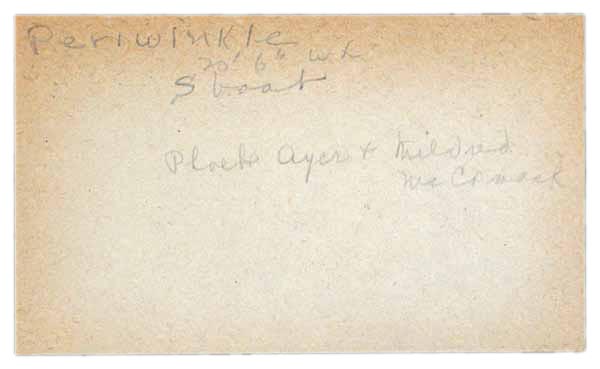 Periwinkle
20' 6" W L
S boat
Phoebe Ayer & Mildred
McCormack